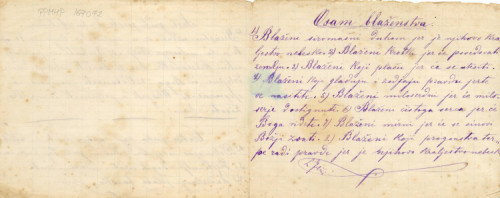 Osam blaženstva:
1) Blaženi siromašni duhom jer je njihovo kralj
jestvo nebesko. 2) Blaženi krotki jer će posjedovati
zemlju. 3) Blaženi koji plaču jer će se utješiti.
4) Blaženi koji gladuju i žedjaju pravdu jer će
se nasititi. 5) Blaženi milosrdni jer će milo
srdje dostignuti. 6) Blaženi čistoga srca jer će
Boga vidjeti. 7) Blaženi mirni jer će se sinovi
Božji zvati. 8) Blaženi koji progonstva ter
pe radi pravde jer je njihovo kraljestvo nebesk